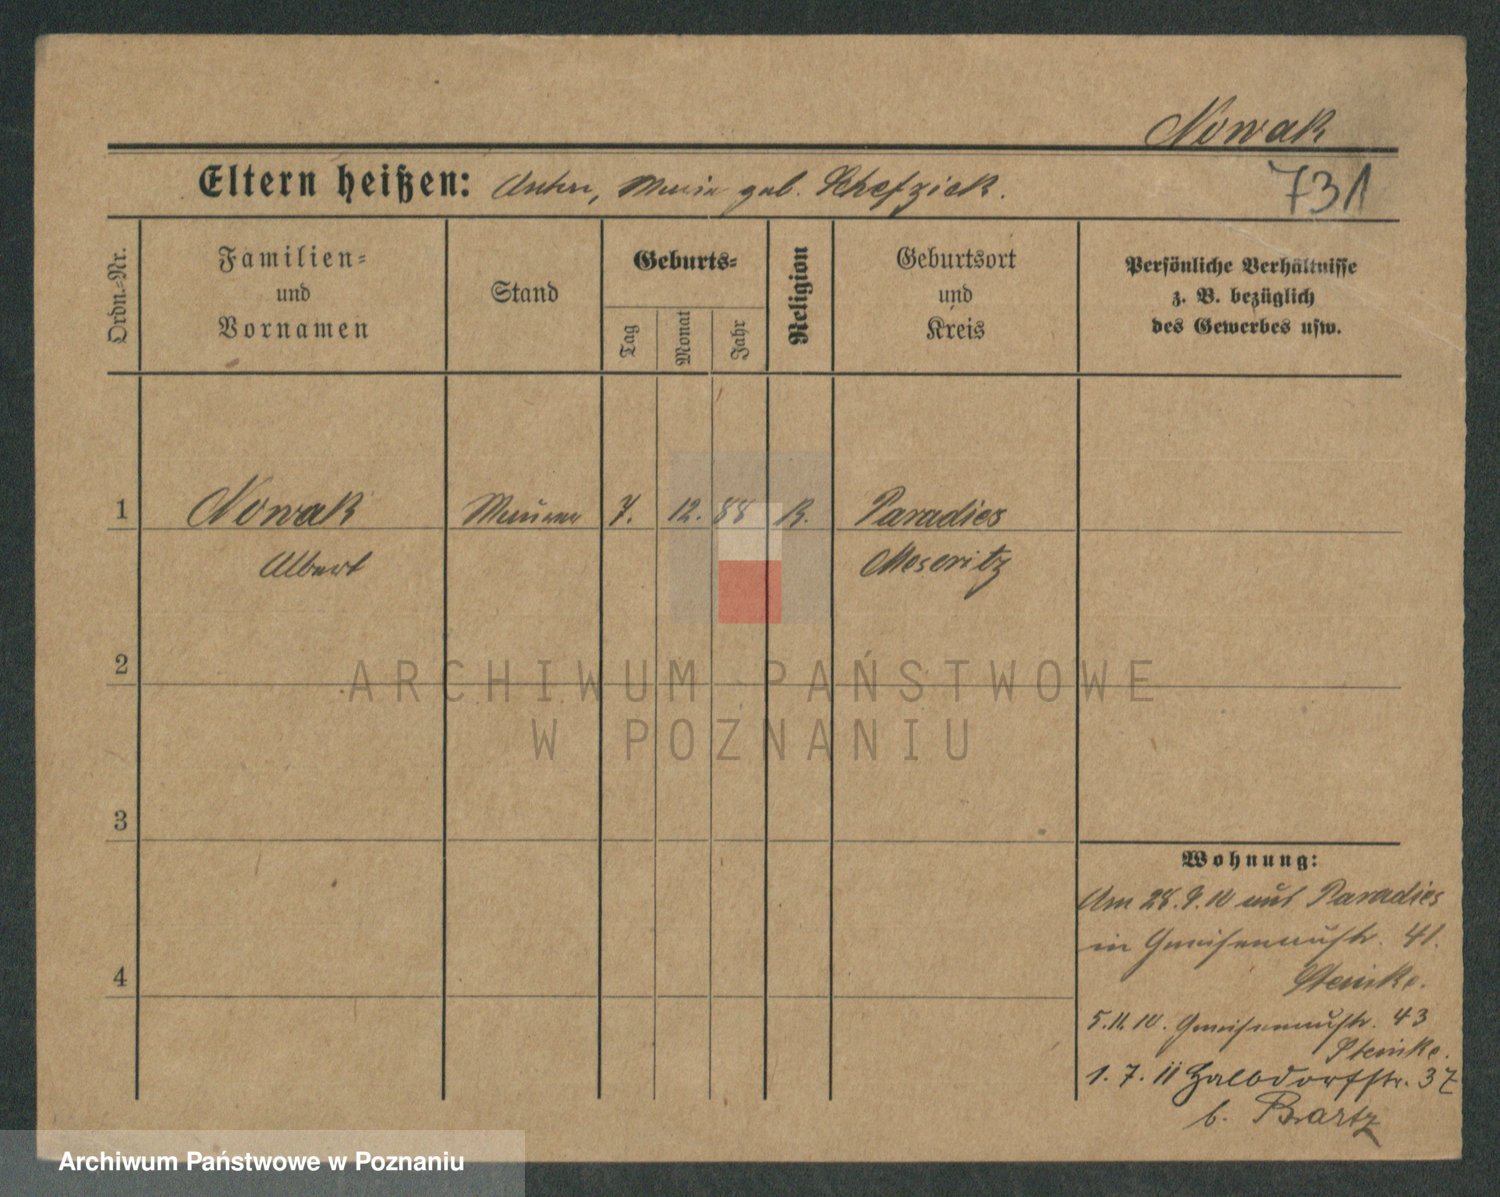 Nowak
731
Eltern heißen: Anton, Maria geb.
Ordn.-Nr.
Familien-
und
Vornamen
Stand
Geburts-
Tag
Monat
Jahr
Religion
Geburtsort
und
Kreis
Persönliche Verhältnisse
z. B. bezüglich
des Gewerbes usw.
1
Nowak
Maurer
7.
12.
88
K.
Paradies
Albert
Meseritz
2
ARCHIWUM PAŃSTWOWE
W POZNANIU
3
4
Wohnung:
Am 28.9.10 aus Paradies
in Gneisenaustr. 41.
Steinke.
5.11.10. Gneisenaustr. 43
Steinke.
1.7.11 Halbdorfstr. 37
b. Bartz
Archiwum Państwowe w Poznaniu